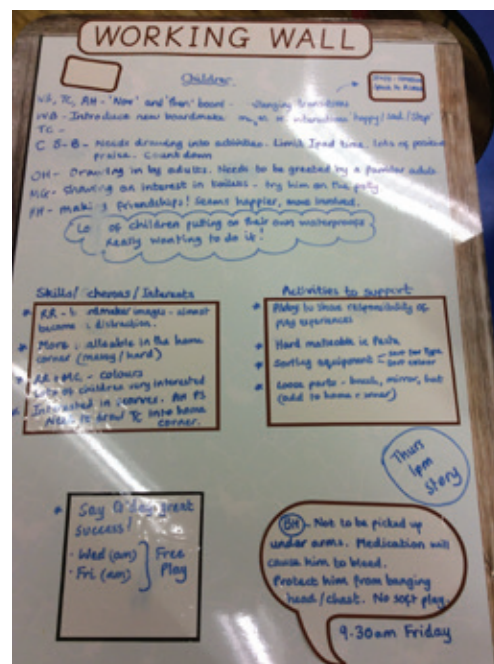 WORKING WALL
Children
VS, TC, AH - 'Now' and 'Then' board - changing transitions
WB - Introduce new boardmaker interactions 'happy/sad/stop'
TC -
C S-B - Needs drawing into activities. Limit Ipad time. Lots of positive
praise. Count down
OH - Drawing in by adults. Needs to be greeted by a familiar adult
MG - Showing an interest in toilets - try him on the potty
making friendships! Seems happier, more involved.
of children putting on their own waterproofs
Really wanting to do it!
Skills/ /Interests
RR - images - almost
become distraction.
More in the home
corner (messy/hard)
RR + MC - colours
Lots of children very interested
Interested in . AH PS
Need to draw TC into home
corner.
Activities to support
to share responsibility of
play experiences
Hard materials in
Sorting equipment - Sort for Type
Sort colour
Loose parts - brush, mirror, hat
(add to home corner)
Thurs
1pm
Story
Say G'day great
success!
Wed (am)
Fri (am)
Free
Play
Not to be picked up
under arms. Medication will
cause him to bleed.
Protect him from banging
head/chest. No soft play.
9-30am Friday